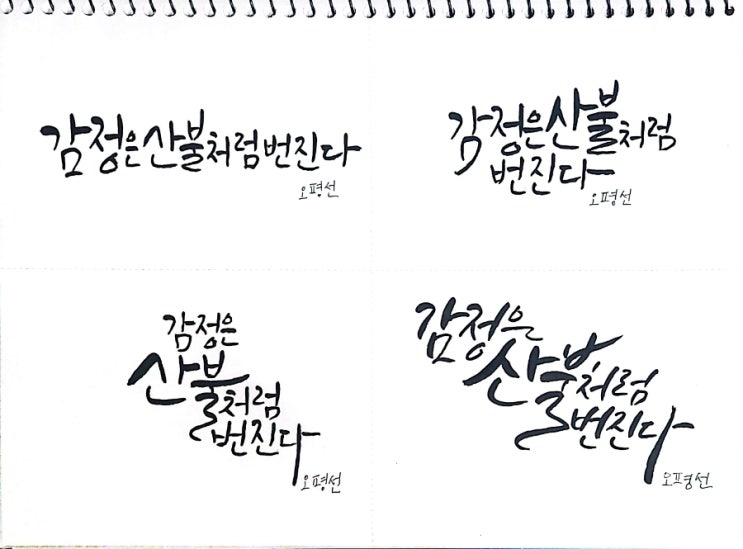 감정은산불처럼번진다
오평선
감정은산불처럼
번진다
오평선
감정은
산불처럼
번진다
오평선
감정은
산불처럼
번진다
오평선